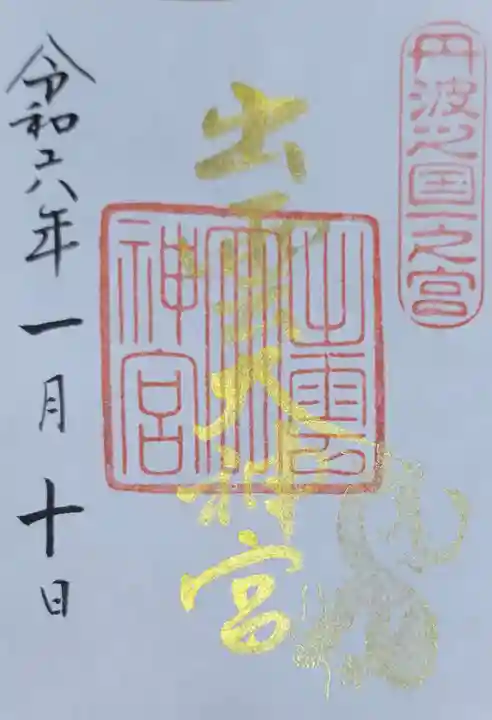 丹波之国一之宮
出雲大神宮
出雲大神宮
令和六年一月十日